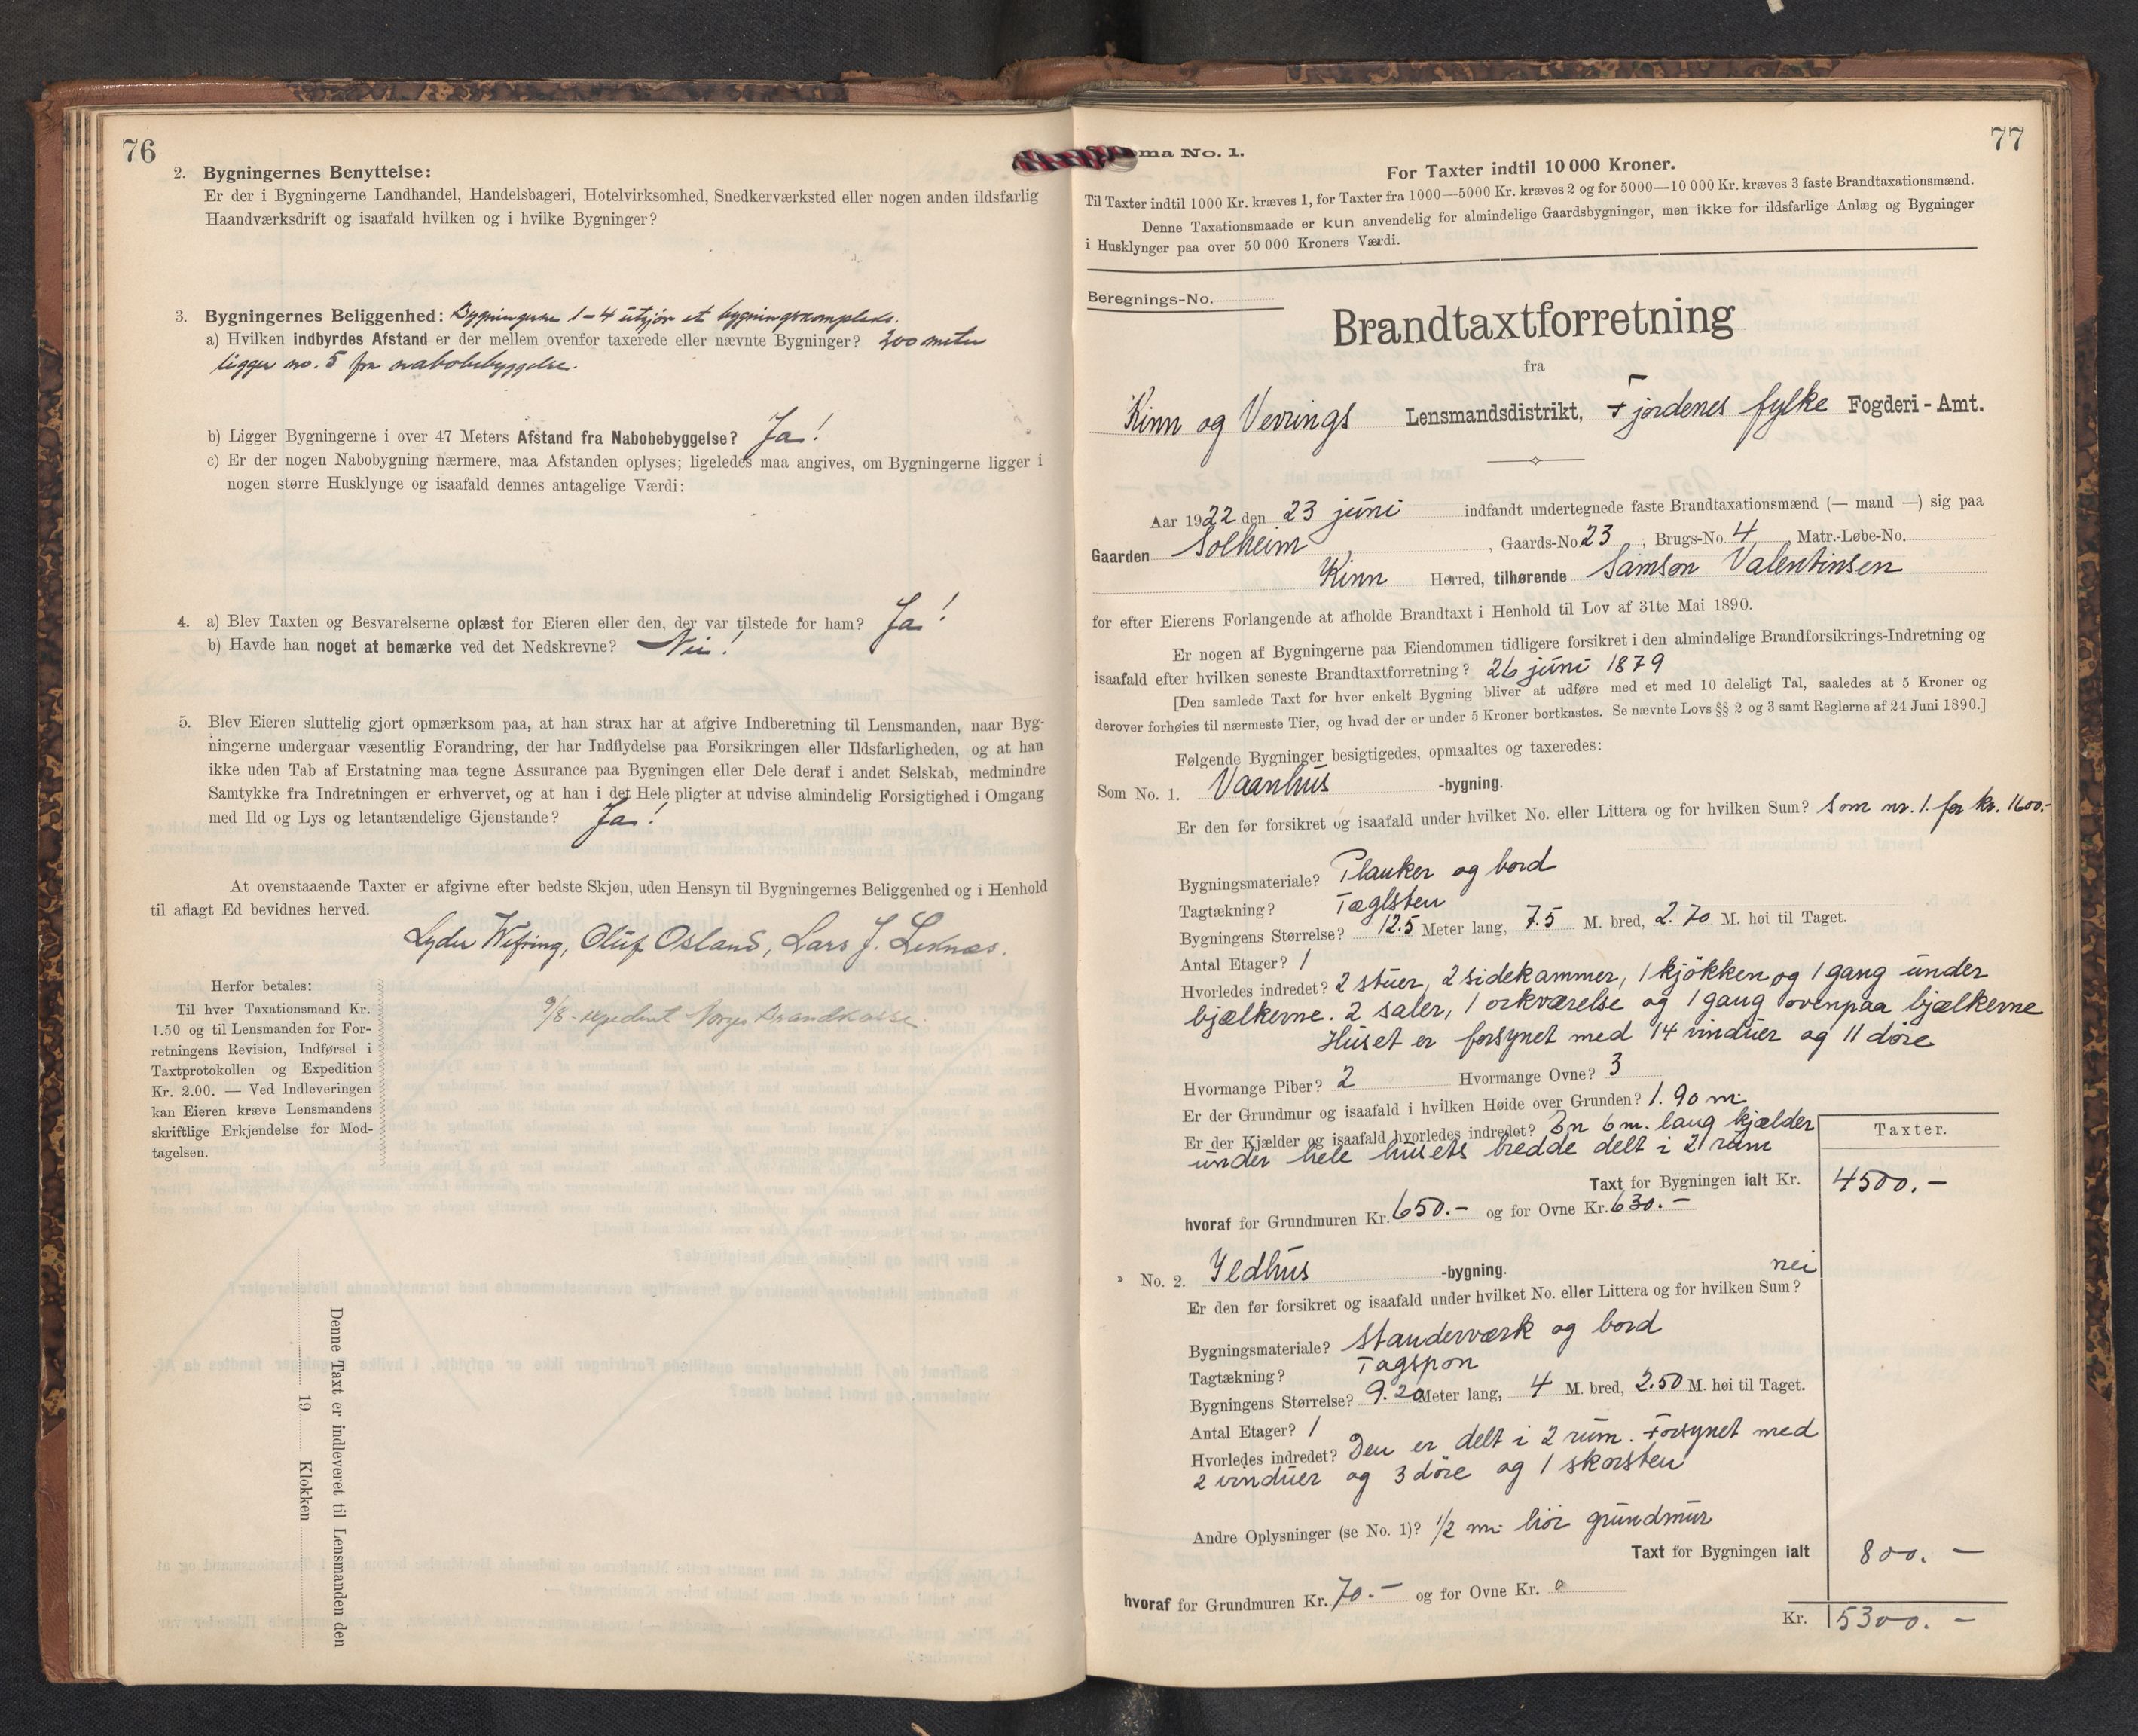 76
2. Bygningernes Benyttelse:
Er der i Bygningerne Landhandel, Handelsbageri, Hotelvirksomhed, Snedkerværksted eller nogen anden ildsfarlig
Haandværksdrift og isaafald hvilken og i hvilke Bygninger?
3. Bygningernes Beliggenhed: Bygningerne 1-4 utgjør et bygningskompleks.
a) Hvilken indbyrdes Afstand er der mellem ovenfor taxerede eller nævnte Bygninger? 200 meter
ligger no. 5 fra nabobebyggelse.
b) Ligger Bygningerne i over 47 Meters Afstand fra Nabobebyggelse? Ja!
c) Er der nogen Nabobygning nærmere, maa Afstanden oplyses; ligeledes maa angives, om Bygningerne ligger i
nogen større Husklynge og isaafald dennes antagelige Værdi:
4. a) Blev Taxten og Besvarelserne oplæst for Eieren eller den, der var tilstede for ham? Ja!
b) Havde han noget at bemærke ved det Nedskrevne? Nei!
5. Blev Eieren sluttelig gjort opmærksom paa, at han strax har at afgive Indberetning til Lensmanden, naar Byg-
ningerne undergaar væsentlig Forandring, der har Indflydelse paa Forsikringen eller Ildsfarligheden, og at han
ikke uden Tab af Erstatning maa tegne Assurance paa Bygningen eller Dele deraf i andet Selskab, medmindre
Samtykke fra Indretningen er erhvervet, og at han i det Hele pligter at udvise almindelig Forsigtighed i Omgang
med Ild og Lys og letantændelige Gjenstande? Ja!
At ovenstaaende Taxter er afgivne efter bedste Skjøn, uden Hensyn til Bygningernes Beliggenhed og i Henhold
til aflagt Ed bevidnes herved.
Lyder Wefring, Oluf Osland, Lars J. Leknes.
Herfor betales:
Til hver Taxationsmand Kr.
1.50 og til Lensmanden for For-
retningens Revision, Indførsel i
Taxtprotokollen og Expedition
Kr. 2.00. — Ved Indleveringen
kan Eieren kræve Lensmandens
skriftlige Erkjendelse for Mod-
tagelsen.
9/8 - expedert Norges Brandkasse.
Denne Taxt er indleveret til Lensmanden den
19 Klokken
77
ma No. 1.
For Taxter indtil 10 000 Kroner.
Til Taxter indtil 1000 Kr. kræves 1, for Taxter fra 1000—5000 Kr. kræves 2 og for 5000—10 000 Kr. kræves 3 faste Brandtaxationsmænd.
Denne Taxationsmaade er kun anvendelig for almindelige Gaardsbygninger, men ikke for ildsfarlige Anlæg og Bygninger
i Husklynger paa over 50 000 Kroners Værdi.
Beregnings-No.
Brandtaxtforretning
fra
Kinn og Vevrings Lensmandsdistrikt, Fjordenes fylke Fogderi-Amt.
Aar 1922 den 23 juni indfandt undertegnede faste Brandtaxationsmænd (— mand —) sig paa
Gaarden Solheim, Gaards-No. 23, Brugs-No. 4, Matr.-Løbe-No.
Kinn Herred, tilhørende Samson Valentinsen
for efter Eierens Forlangende at afholde Brandtaxt i Henhold til Lov af 31te Mai 1890.
Er nogen af Bygningerne paa Eiendommen tidligere forsikret i den almindelige Brandforsikrings-Indretning og
isaafald efter hvilken seneste Brandtaxtforretning? 26 juni 1879
[Den samlede Taxt for hver enkelt Bygning bliver at udføre med et med 10 deleligt Tal, saaledes at 5 Kroner og
derover forhøies til nærmeste Tier, og hvad der er under 5 Kroner bortkastes. Se nævnte Lovs §§ 2 og 3 samt Reglerne af 24 Juni 1890.]
Følgende Bygninger besigtigedes, opmaaltes og taxeredes:
Som No. 1. Vaanhus -bygning.
Er den før forsikret og isaafald under hvilket No. eller Littera og for hvilken Sum? Som nr. 1. for kr. 1600.-
Bygningsmateriale? Planker og bord
Tagtækning? Tæglsten
Bygningens Størrelse? 12.5 Meter lang, 7.5 M. bred, 2.70 M. høi til Taget.
Antal Etager? 1
Hvorledes indredet? 2 stuer, 2 sidekammer, 1 kjökken og 1 gang under
bjælkerne. 2 saler, 1 orkværelse og 1 gang ovenpaa bjælkerne
Huset er forsynet med 14 vinduer og 11 döre
Hvormange Piber? 2 Hvormange Ovne? 3
Er der Grundmur og isaafald i hvilken Høide over Grunden? 1.90 m
Er der Kjælder og isaafald hvorledes indredet? En 6 m. lang kjælder
under hele husets bredde delt i 2 rum
Taxter.
Taxt for Bygningen ialt Kr. 4500.-
hvoraf for Grundmuren Kr. 650.- og for Ovne Kr. 630.-
» No. 2. Ildhus -bygning. nei
Er den før forsikret og isaafald under hvilket No. eller Littera og for hvilken Sum?
Bygningsmateriale? Standerværk og bord
Tagtækning? Tagspon
Bygningens Størrelse? 9.20 Meter lang, 4 M. bred, 2.50 M. høi til Taget.
Antal Etager? 1
Hvorledes indredet? Den er delt i 2 rum. Forsynet med
2 vinduer og 3 döre og 1 skorsten
Andre Oplysninger (se No. 1)? 1/2 m. höi grundmur
Taxt for Bygningen ialt 800.-
hvoraf for Grundmuren Kr. 70.- og for Ovne Kr. 0
Kr. 5300.-